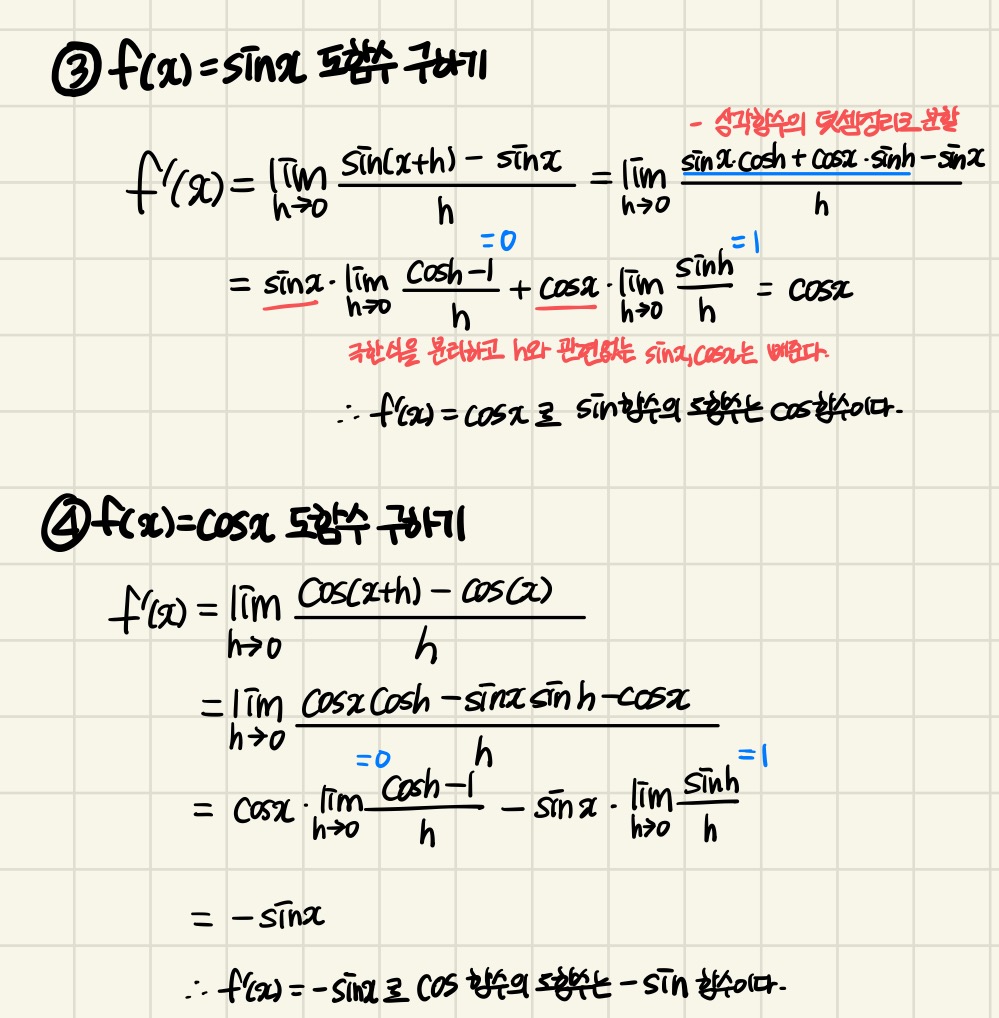 ③ f(x) = sinx 도함수 구하기
- 삼각함수의 덧셈정리로 분할
f'(x) = lim h→0 (sin(x+h) - sinx)/h = lim h→0 (sinx·cosh + cosx·sinh - sinx)/h
=0 =1
= sinx · lim h→0 (cosh-1)/h + cosx · lim h→0 sinh/h = cosx
극한식을 분리하고 h와 관련없는 sinx, cosx는 빼준다.
∴ f'(x) = cosx로 sin함수의 도함수는 cos함수이다.
④ f(x) = cosx 도함수 구하기
f'(x) = lim h→0 (cos(x+h) - cos(x))/h
= lim h→0 (cosx cosh - sinx sinh - cosx)/h
=0 =1
= cosx · lim h→0 (cosh-1)/h - sinx · lim h→0 sinh/h
= -sinx
∴ f'(x) = -sinx로 cos 함수의 도함수는 -sin 함수이다.